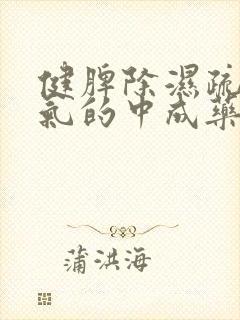 健脾除濕疏
氣的中成藥
蒲洪海